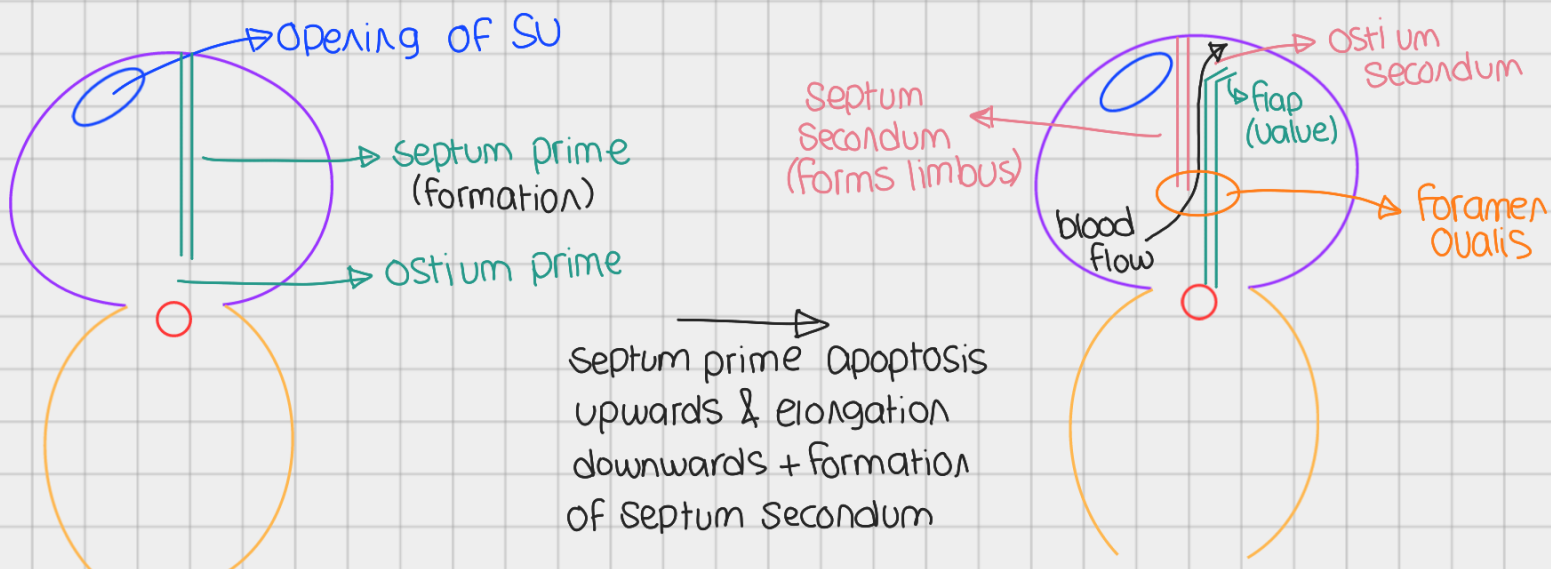 Opening of SU
Septum prime
(formation)
Ostium prime
Septum prime apoptosis
upwards & elongation
downwards + formation
of septum secondum
Septum
secondum
(forms limbus)
blood
flow
Ostium
secondum
flap
(value)
Foramen
Oualis